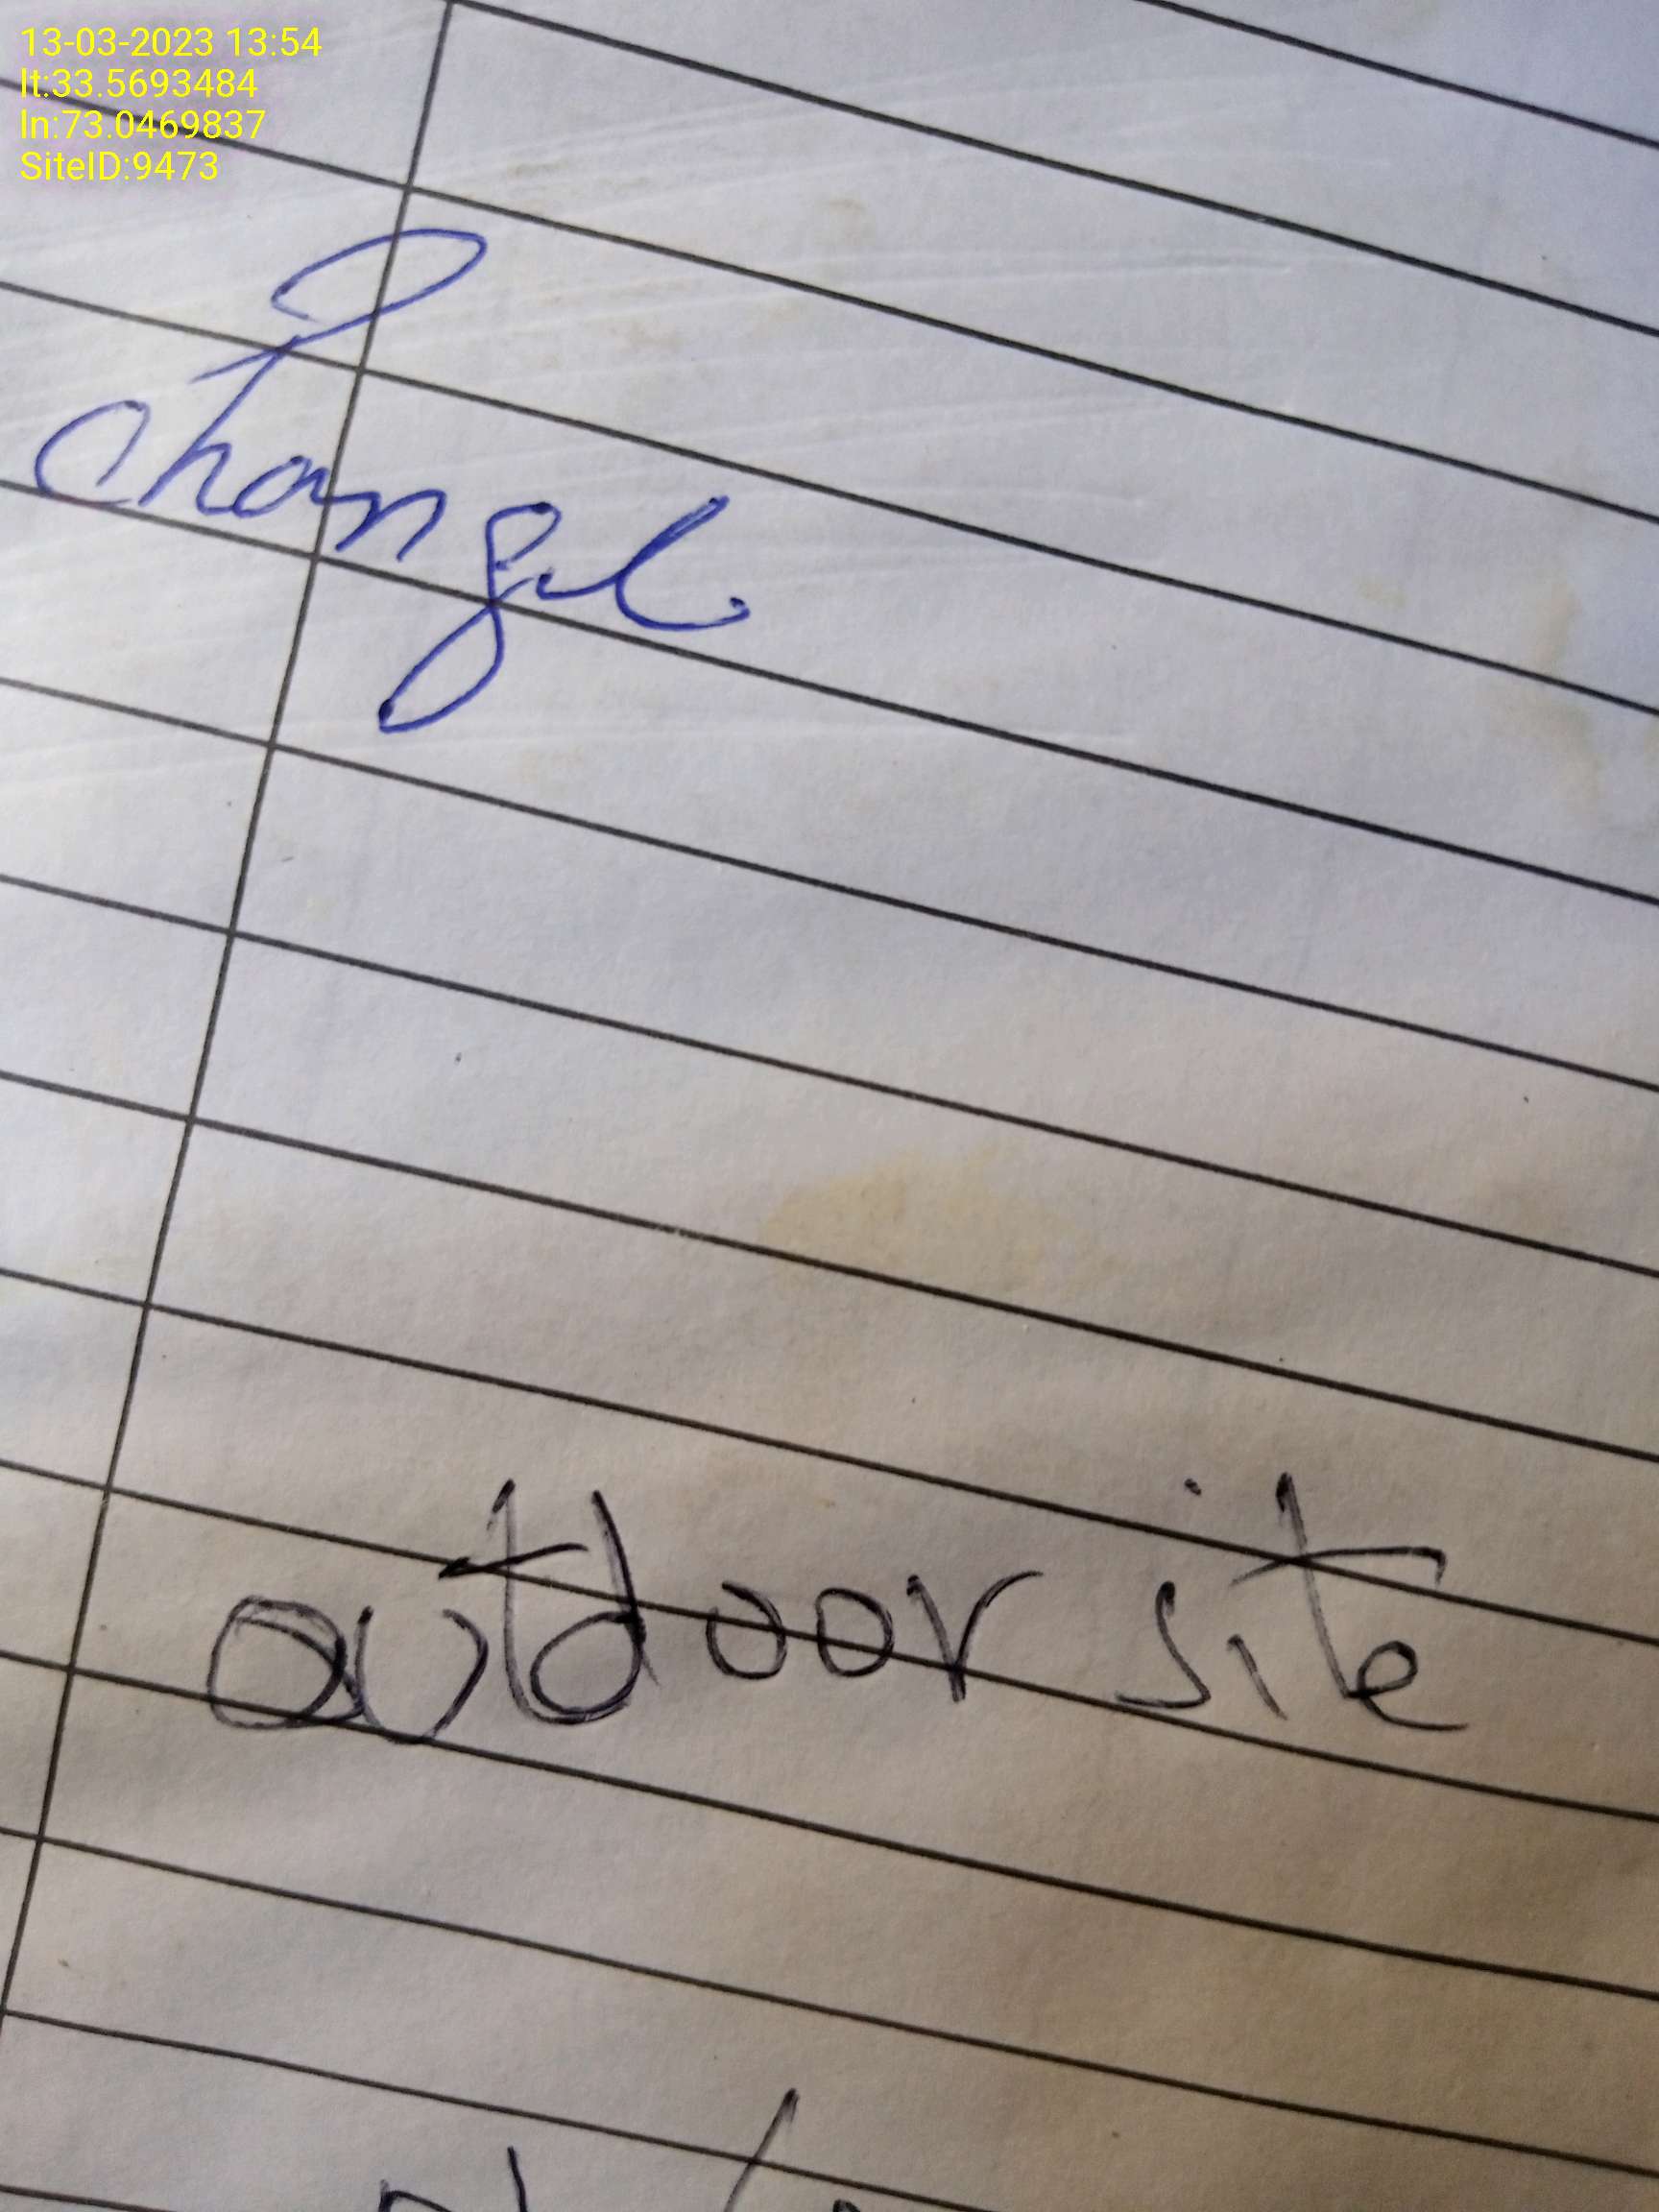 13-03-2023 13:54
lt:33.5693484
ln:73.0469837
SiteID:9473
Change
outdoor site